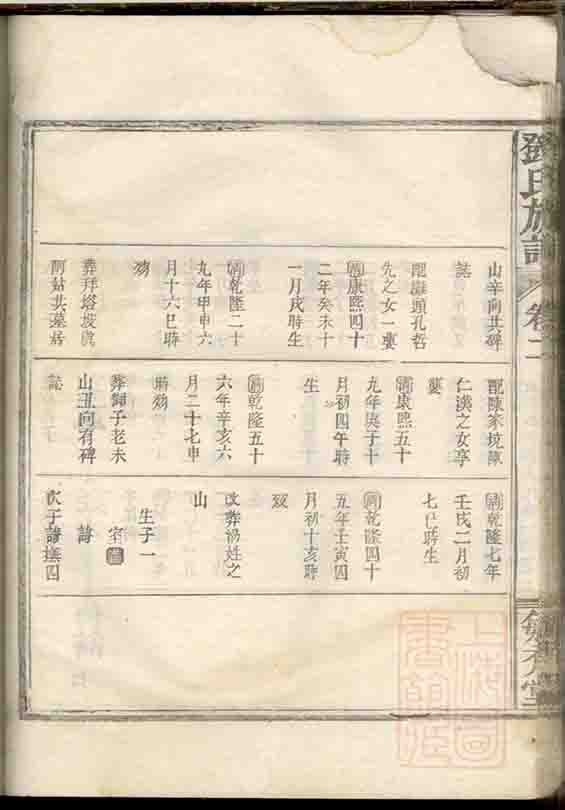 鄧氏族譜
卷二
山辛向共碑
誌
配 頭孔哲
先之女一婁
清康熙四十
二年癸未十
一月戌時生
清乾隆二十
九年甲申六
月十六巳時
歿
葬拜塔坡
向姑共墓
配陳家坑陳
仁漢之女享
婁
清康熙五十
九年庚子十
月初四午時
生
清乾隆五十
六年辛亥六
月二十七申
時歿
葬獅子老未
山丑向有碑
誌
清乾隆七年
壬戌二月初
七巳時生
清乾隆四十
五年 寅四
月初十亥時
歿
改葬楊姓之
山
生子一
室
詩
次子詩 四
上海圖
書館藏